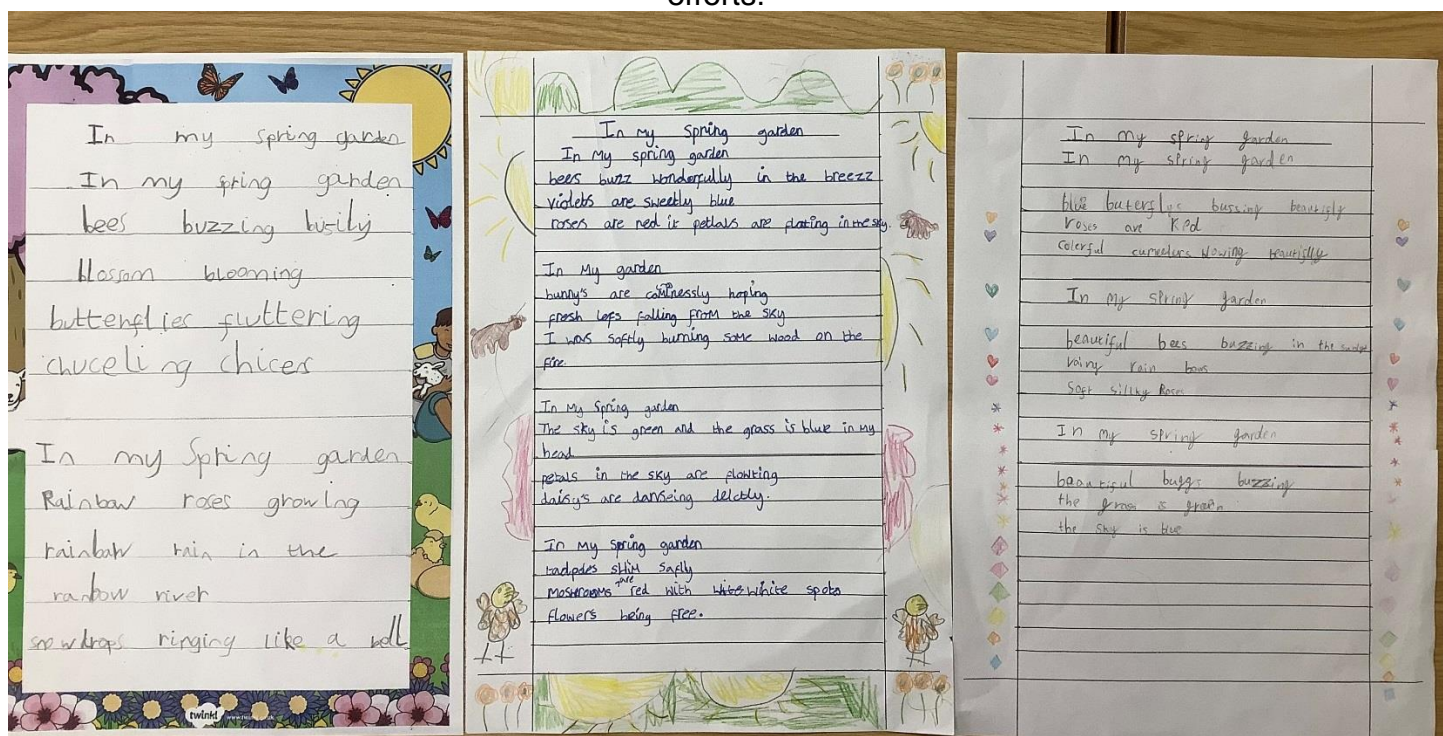 efforts.
In my spring garden
In my spring garden
bees buzzing busily
blossom blooming
butterflies fluttering
chuceling chices
In my Spring garden
Rainbow roses growing
rainbow rain in the
ranbow river
snowdrops ringing like a bell
twinkl
In My Spring garden
In My spring garden
bees buzz wonderfully in the breezz
violets are sweetly blue
roses are red it petlals are floting in the sky.
In My garden
bunny's are hoping
fresh lefs falling from the sky
I was softly burning some wood on the
fire.
In My Spring garden
The sky is green and the grass is blue in my
head
petals in the sky are flowting
daisy's are danseing delctly.
In My Spring garden
tadpoles swim safly
moshrooms are red with white spots
flowers being free.
In my spring garden
In my spring garden
blue buterflos bussing
roses are Red
colerful
In my spring garden
beautiful bees buzzing in the
rainy rain bows
Soft sillky Roses
In my spring garden
baautiful buggs buzzing
the grass is
the sky is blue